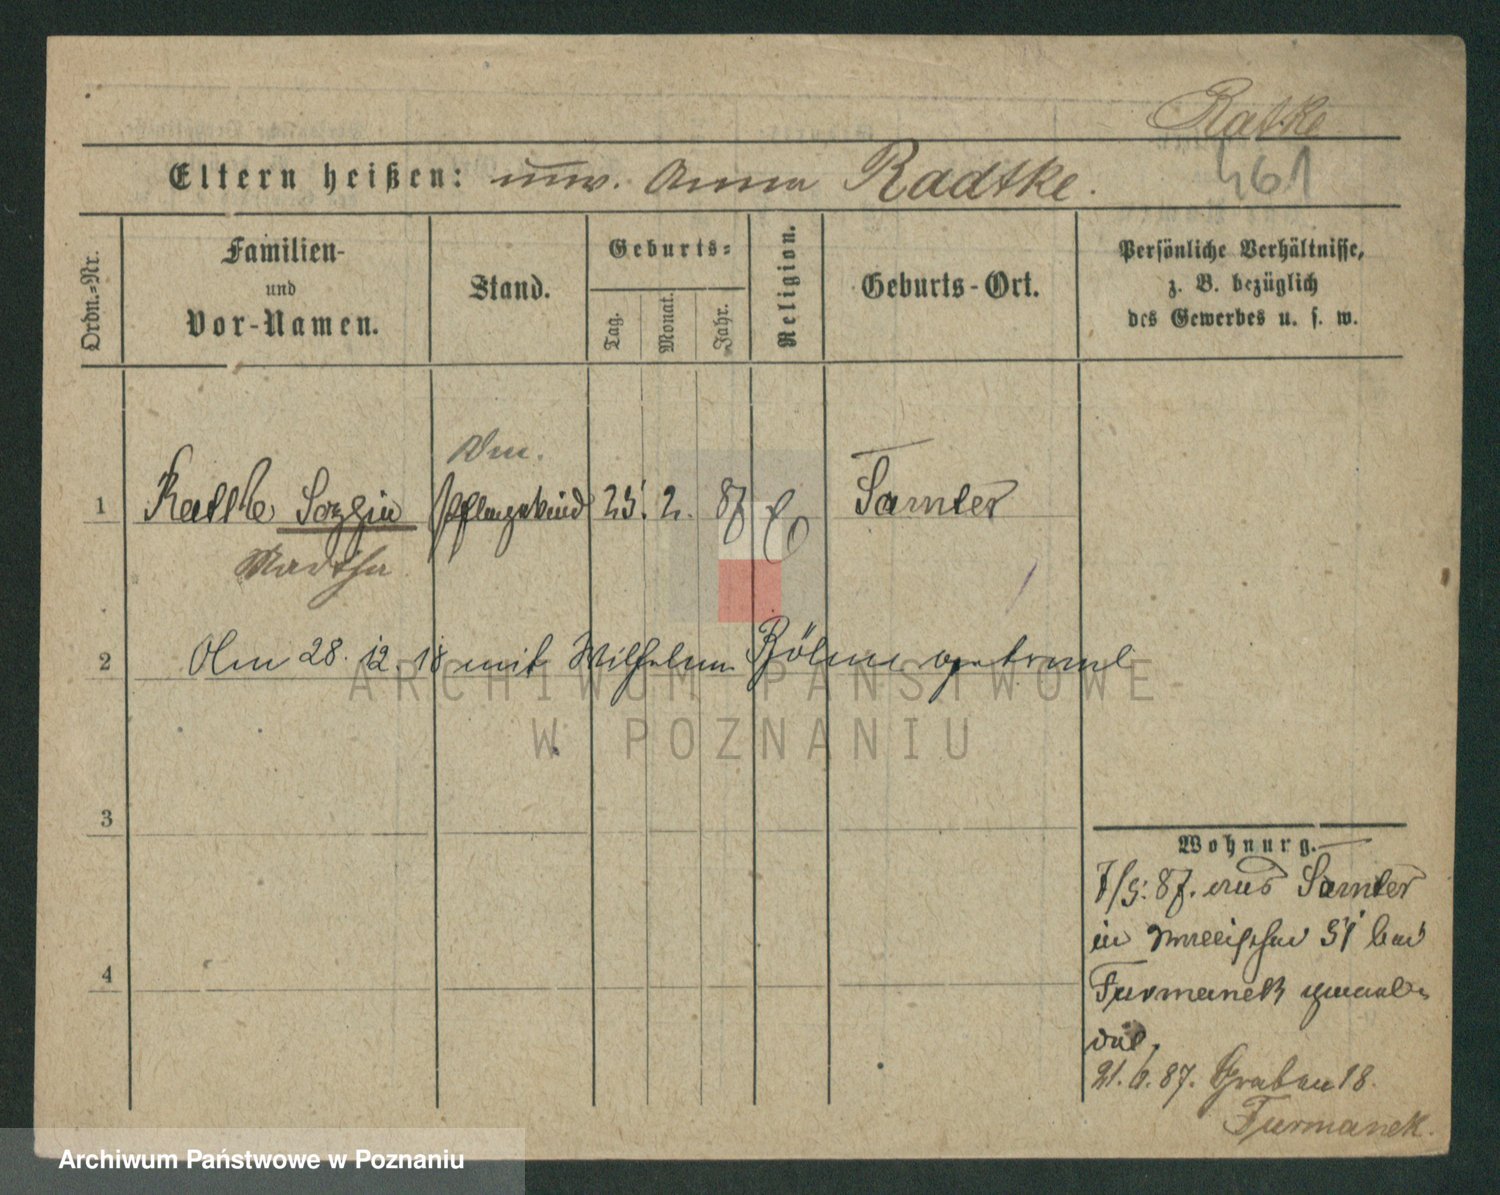 Radtke
461
Eltern heißen: unv. Anna Radtke.
Ordn.-Nr.
Familien-
und
Vor-Namen.
Stand.
Geburts-
Tag.
Monat.
Jahr.
Religion.
Geburts-Ort.
Persönliche Verhältnisse,
z. B. bezüglich
des Gewerbes u. s. w.
1 Radtke Pflegekind 25. 2. 87 Samter
Martha
2 Am 28. 12. 18 mit Wilhelm Böhm getraut
3
4
Wohnung.
7/5. 87. aus Samter
in Wallischei 51 bei
Furmanek
21. 6. 87. Graben 18.
Furmanek.
ARCHIWUM PAŃSTWOWE
W POZNANIU
Archiwum Państwowe w Poznaniu